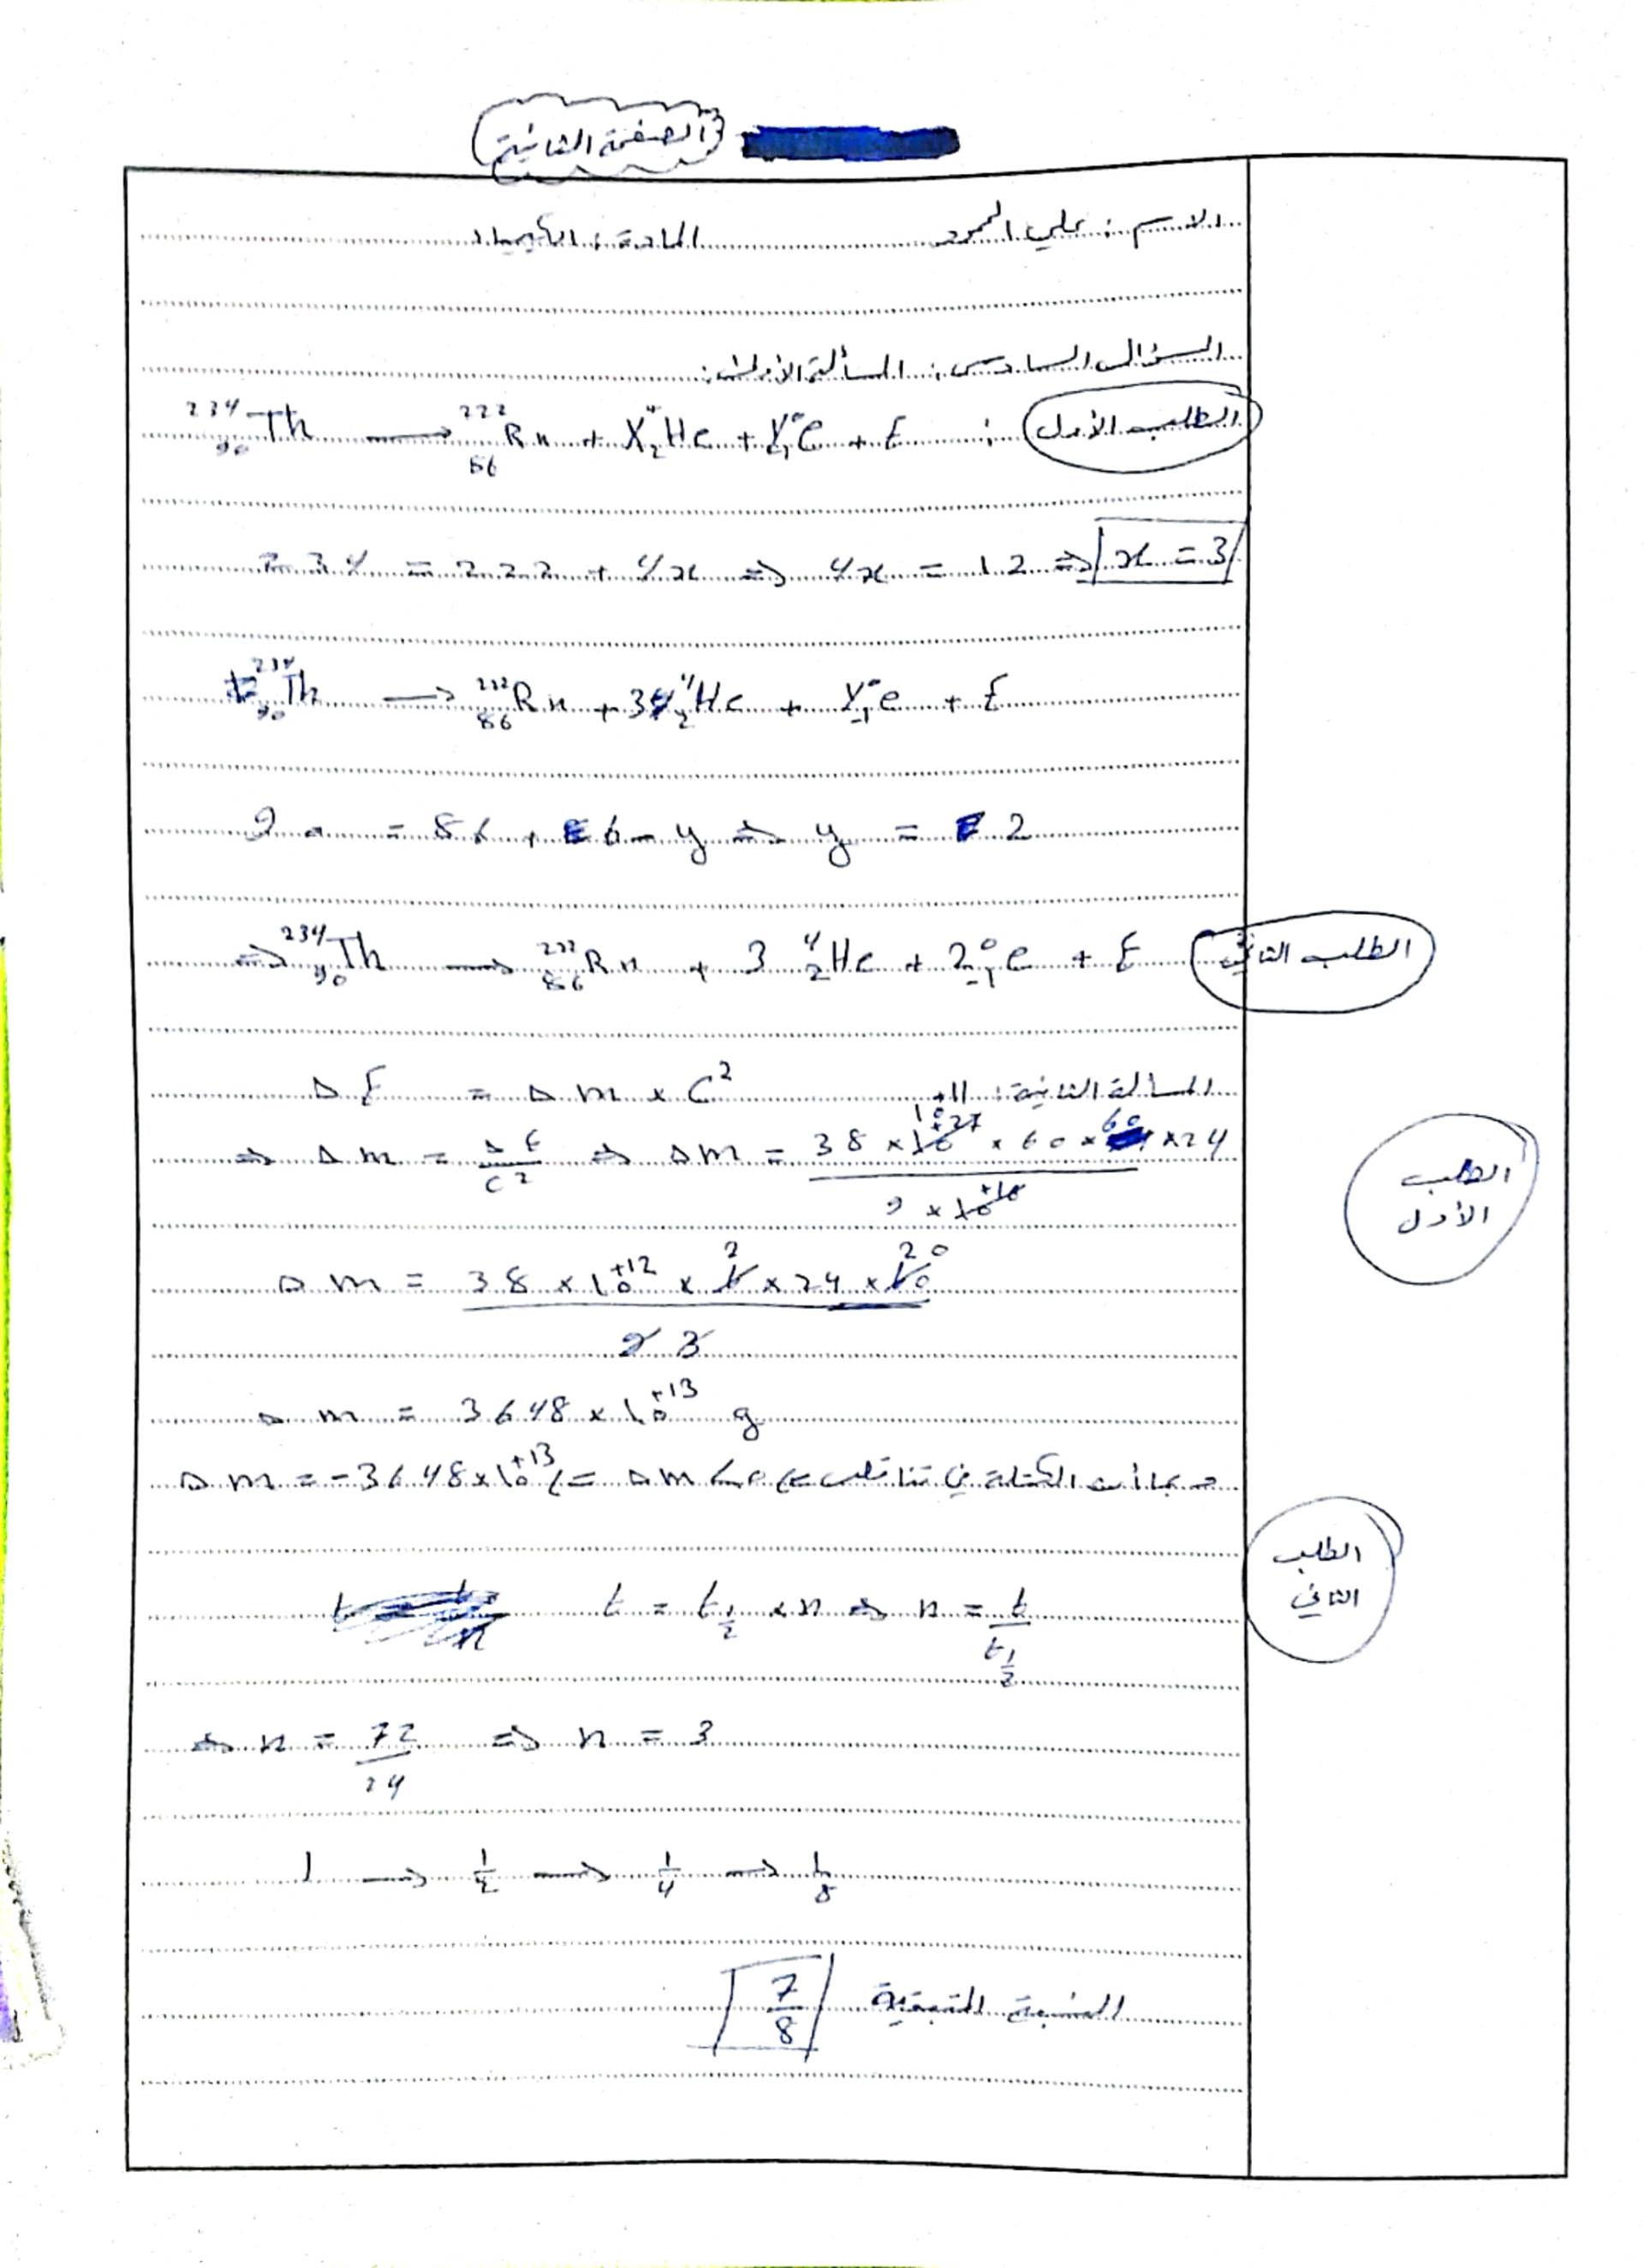 الصفحة الثانية
الاسم: علي المحمود المادة: الكيمياء
السؤال السادس: المسألة الأولى:
الطلب الأول: ²³⁴₉₀Th → ²²²₈₆Rn + X ⁴₂He + Y ⁰₋₁e + E
234 = 222 + 4x ⇒ 4x = 12 ⇒ x = 3
²³⁴₉₀Th → ²²²₈₆Rn + 3 ⁴₂He + Y ⁰₋₁e + E
90 = 86 + 6 - y ⇒ y = 2
الطلب الثاني ⇒ ²³⁴₉₀Th → ²²²₈₆Rn + 3 ⁴₂He + 2 ⁰₋₁e + E
المسألة الثانية: ΔE = Δm × C²
الطلب الأول
⇒ Δm = ΔE / C² ⇒ Δm = 38 × 10⁺²⁷ × 60 × 60 × 24 / 9 × 10⁺¹⁶
Δm = 38 × 10⁺¹² × 6 × 24 × 60 / 9 3
Δm = 3648 × 10⁺¹³ g
بما أن الكتلة في تناقص ⇐ Δm < 0 ⇐ Δm = -3648 × 10⁺¹³
الطلب الثاني
t = t½ × n ⇒ n = t / t½
⇒ n = 72 / 24 ⇒ n = 3
1 → 1/2 → 1/4 → 1/8
النسبة المتبقية 7/8